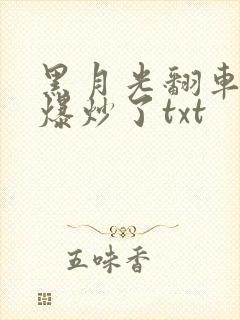 黑月光翻車
爆炒了txt
五味香